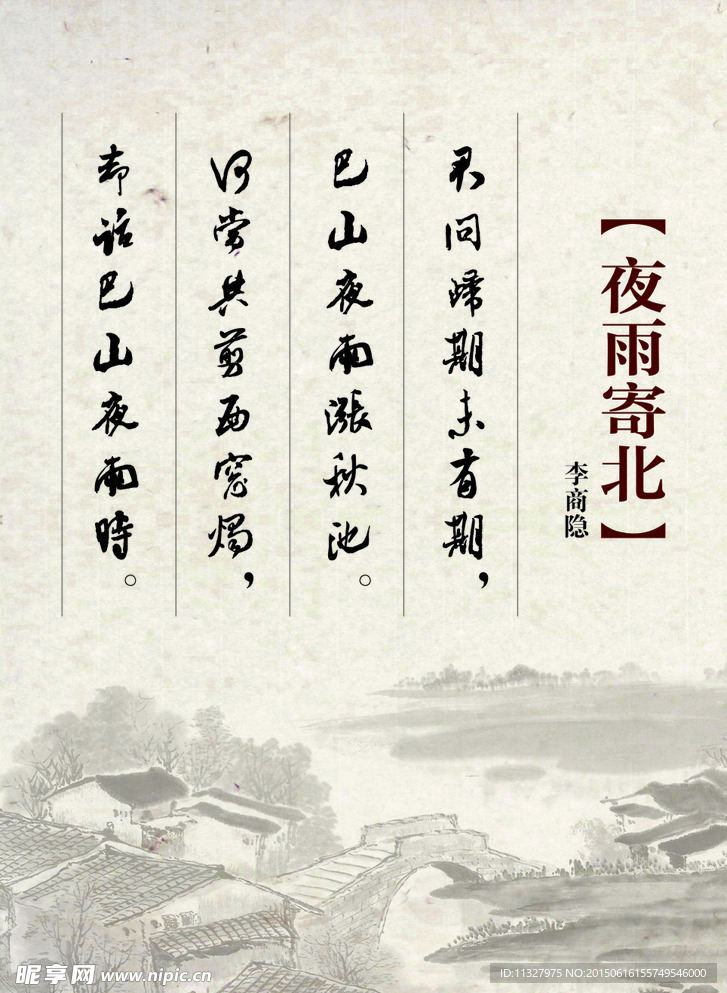 【夜雨寄北】
李商隐
君问歸期未有期，
巴山夜雨漲秋池。
何當共剪西窓燭，
却話巴山夜雨時。
昵享网 www.nipic.cn
ID:11327975 NO:20150616155749546000